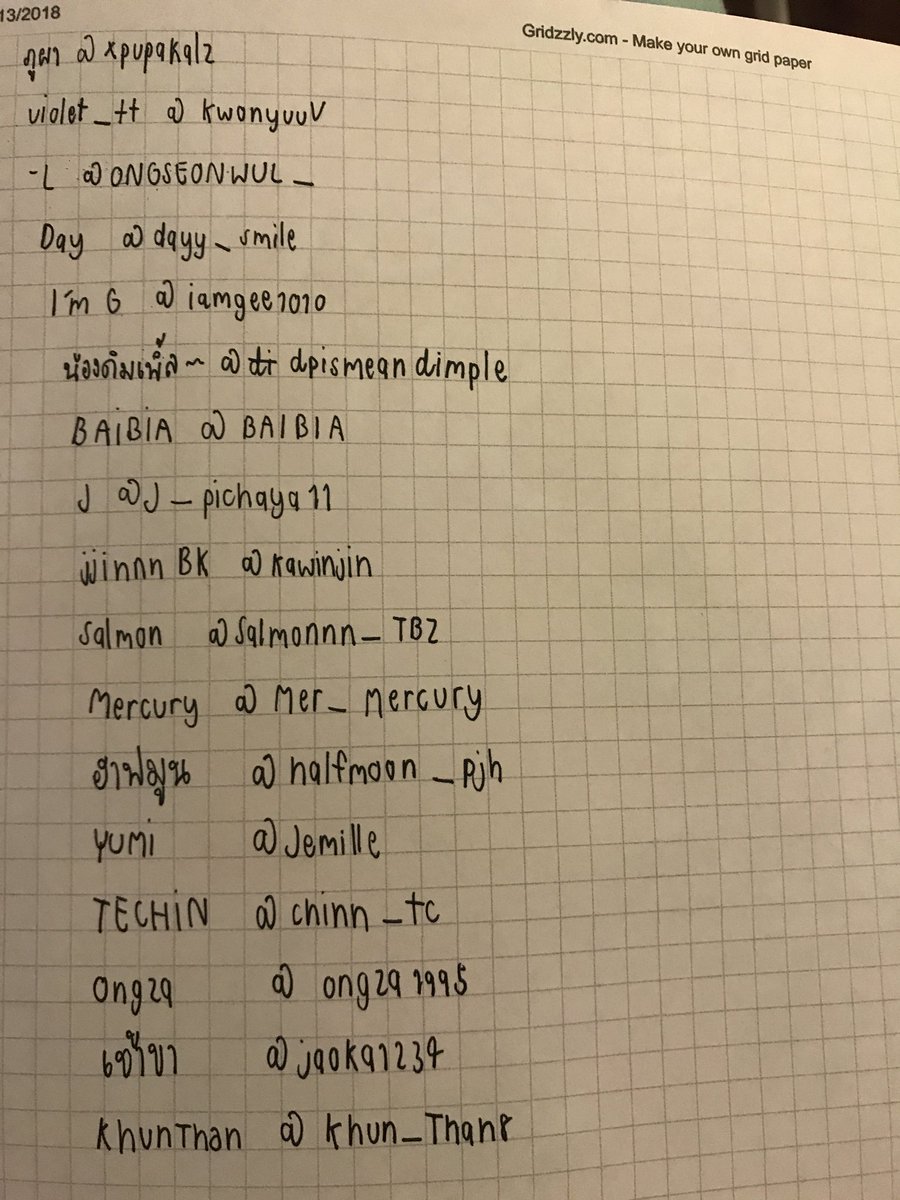 13/2018
Gridzzly.com - Make your own grid paper
ภูผา @xpupakalz
violet_tt @ kwonyuuV
-L @ONGSEONWUL_
Day @dayy_smile
I'm G @iamgee1010
น้องดิมเพิ้ล~ @ dpismean dimple
BAiBiA @ BAIBIA
J @J_pichaya11
jjinnn BK @kawinjin
salmon @salmonnn_TBZ
Mercury @ Mer_mercury
ฮาฟมูน @halfmoon_Pjh
YUMi @Jemille
TECHiN @chinn_tc
Ongza @ ongza1995
เข้าขา @jaoka1234
KhunThan @ Khun_Than8